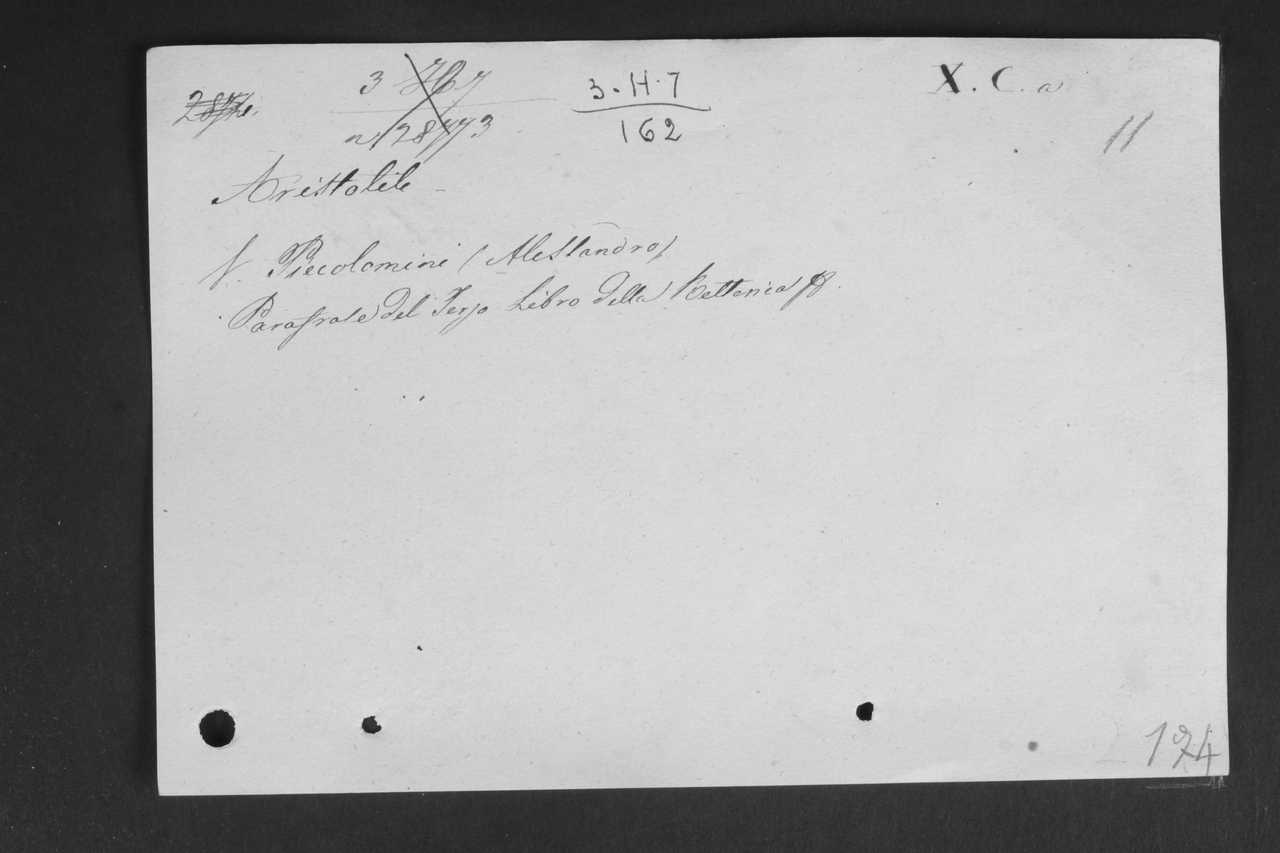 3 H 7
n 28773
3. H. 7
162
X. C. a
11
Aristotile
V. Piccolomini (Alessandro)
Parafrase del Terzo Libro della Rettorica
124